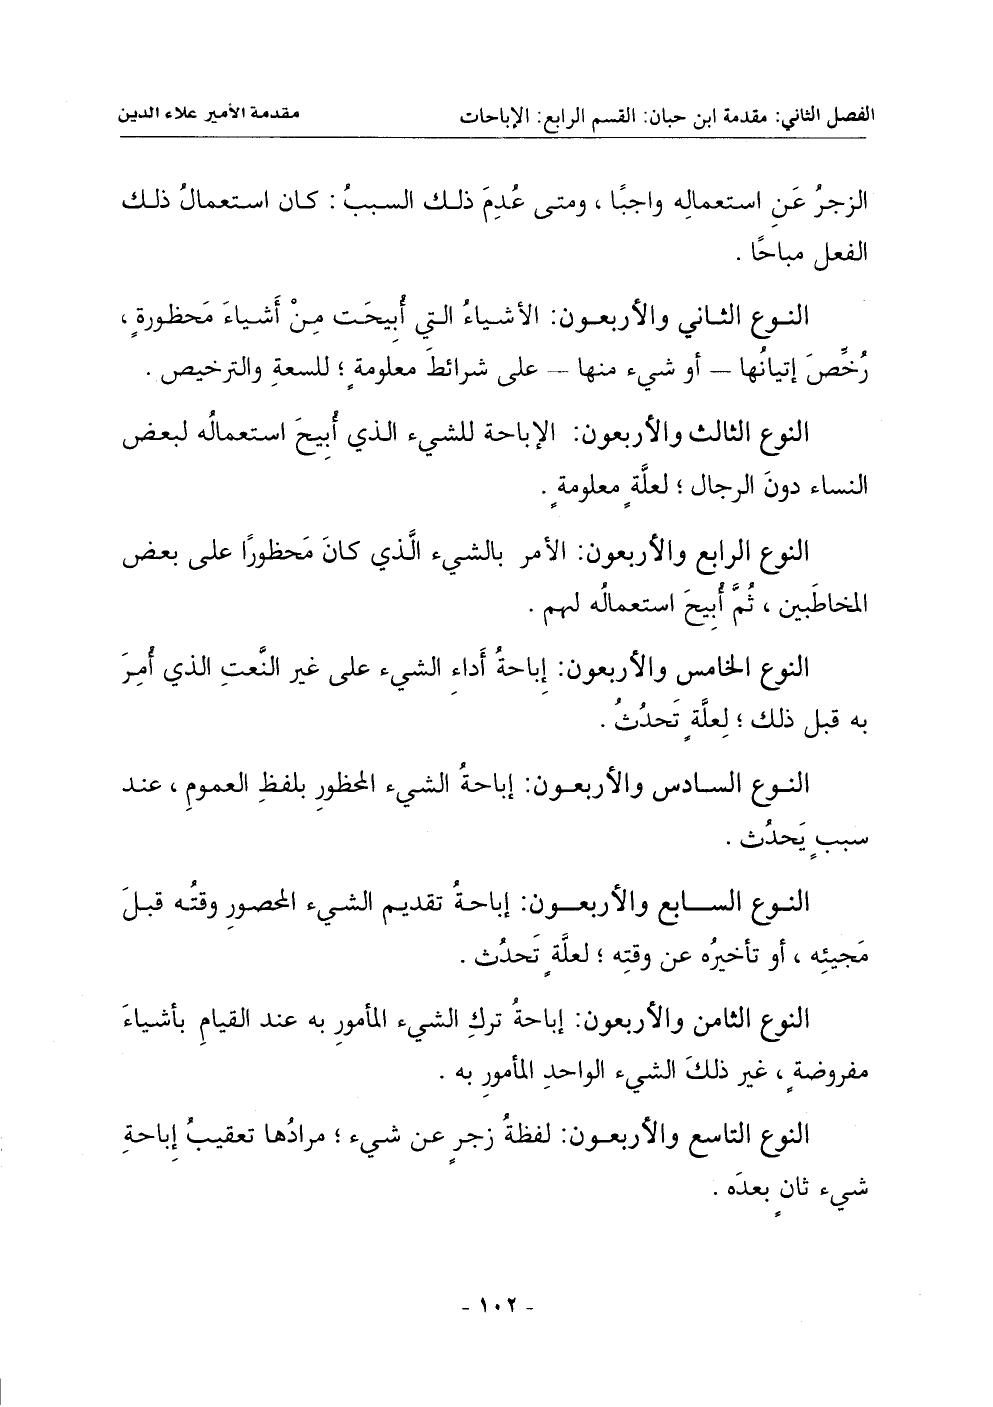 الفصل الثاني: مقدمة ابن حبان: القسم الرابع: الإباحات مقدمة الأمير علاء الدين
الزجرُ عَنِ استعمالِه واجبًا ، ومتى عُدِمَ ذلك السببُ : كان استعمالُ ذلك
الفعل مباحًا .
النوع الثاني والأربعون: الأشياءُ التي أُبيحَت مِنْ أَشياءَ مَحظورةٍ ،
رُخِّصَ إتيانُها – أو شيء منها – على شرائطَ معلومةٍ ؛ للسعةِ والترخيص .
النوع الثالث والأربعون: الإباحة للشيء الذي أُبيحَ استعمالُه لبعض
النساء دونَ الرجال ؛ لعلَّةٍ معلومةٍ .
النوع الرابع والأربعون: الأمر بالشيء الَّذي كانَ مَحظورًا على بعض
المخاطَبين ، ثُمَّ أُبيحَ استعمالُه لهم .
النوع الخامس والأربعون: إباحةُ أَداءِ الشيء على غير النَّعتِ الذي أُمِرَ
به قبل ذلك ؛ لِعلَّةٍ تَحدُثُ .
النوع السادس والأربعون: إباحةُ الشيء المحظورِ بلفظِ العمومِ ، عند
سببٍ يَحدُث .
النوع السابع والأربعون: إباحةُ تقديم الشيء المحصورِ وقتُه قبلَ
مَجيئِه ، أو تأخيرُه عن وقتِه ؛ لعلَّةٍ تَحدُث .
النوع الثامن والأربعون: إباحةُ تركِ الشيء المأمورِ به عند القيامِ بأشياءَ
مفروضةٍ ، غير ذلكَ الشيء الواحدِ المأمورِ به .
النوع التاسع والأربعون: لفظةُ زجرٍ عن شيء ؛ مرادُها تعقيبُ إباحةِ
شيء ثانٍ بعدَه .
- ١٠٢ -